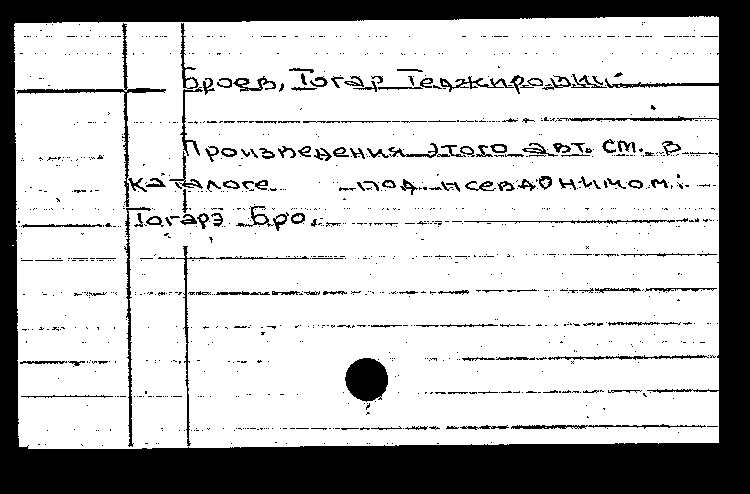 Броев, Тогар Теджирович
Произведения этого авт. см. в
каталоге под псевдонимом:
Тогарэ Бро.